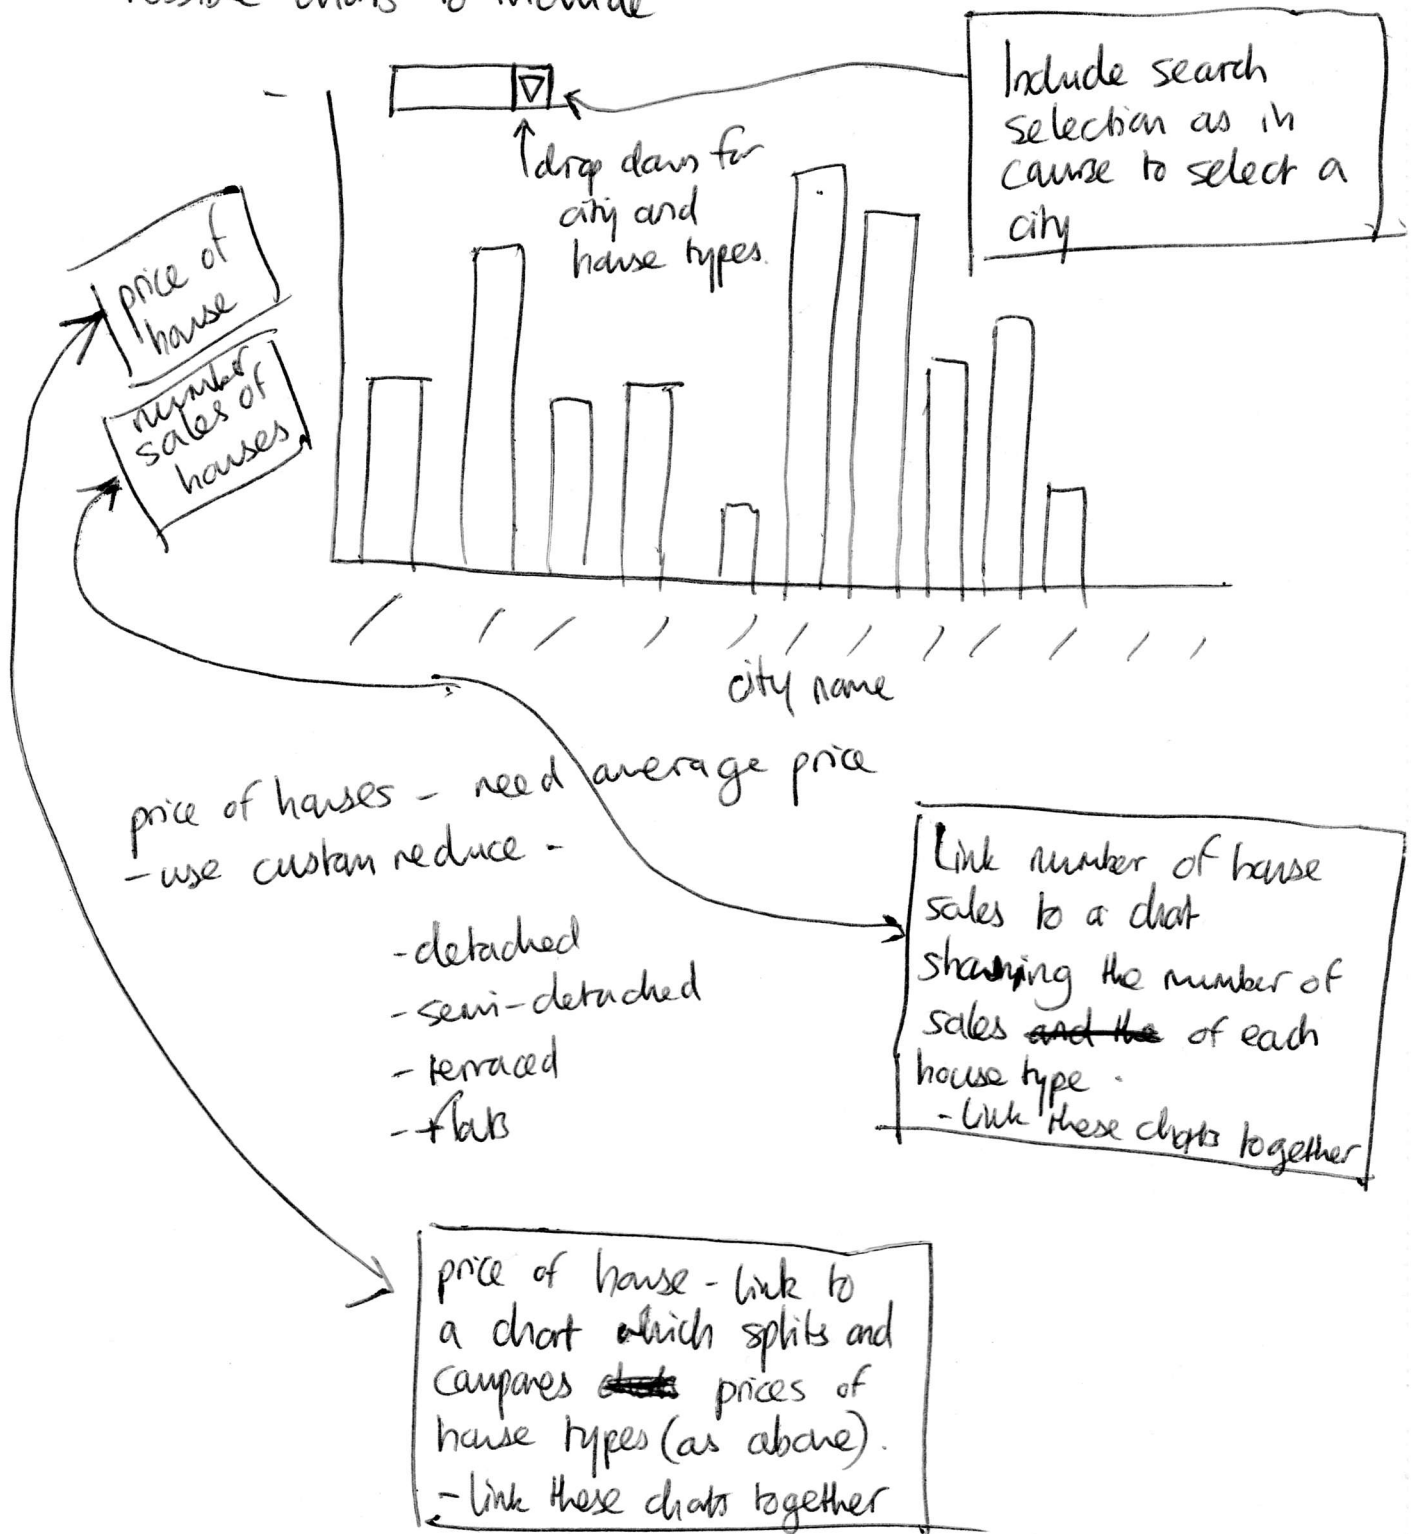 Possible charts to include
Include search
selection as in
course to select a
city
drop down for
city and
house types.
price of
house
number
sales of
houses
city name
price of houses - need average price
- use custom reduce -
- detached
- semi-detached
- terraced
- flats
Link number of house
sales to a chart
showing the number of
sales and the of each
house type.
- link these charts together
price of house - link to
a chart which splits and
compares prices of
house types (as above).
- link these charts together